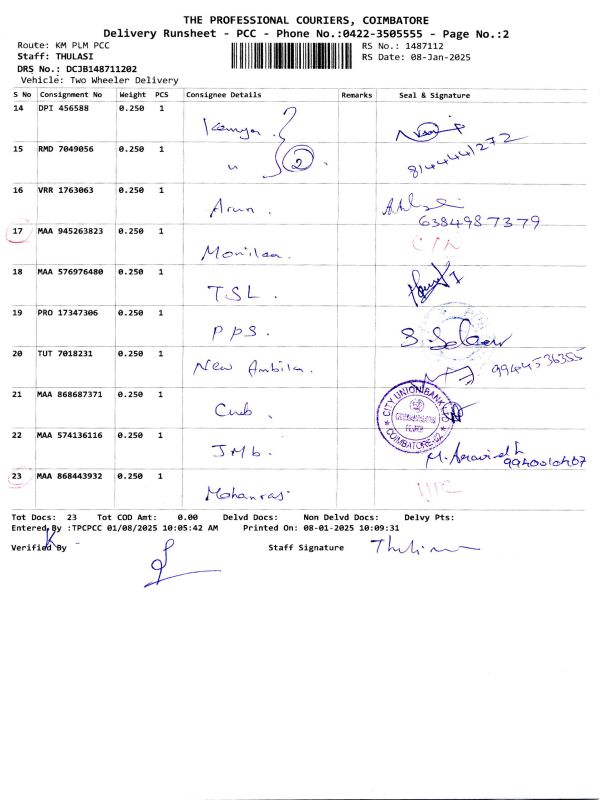 THE PROFESSIONAL COURIERS, COIMBATORE
Delivery Runsheet - PCC - Phone No.:0422-3505555 - Page No.:2
Route: KM PLM PCC
RS No.: 1487112
Staff: THULASI
RS Date: 08-Jan-2025
DRS No.: DCJB148711202
Vehicle: Two Wheeler Delivery
S No Consignment No Weight PCS Consignee Details Remarks Seal & Signature
14 DPI 456588 0.250 1
15 RMD 7049056 0.250 1
" 2
8144441272
16 VRR 1763063 0.250 1
Arun.
6384987379
17 MAA 945263823 0.250 1
18 MAA 576976480 0.250 1
TSL.
19 PRO 17347306 0.250 1
PPS.
20 TUT 7018231 0.250 1
New
9944536355
21 MAA 868687371 0.250 1
CITY UNION BANK
COIMBATORE
Cub.
22 MAA 574136116 0.250 1
JMb.
23 MAA 868443932 0.250 1
Mohanraj
Tot Docs: 23 Tot COD Amt: 0.00 Delvd Docs: Non Delvd Docs: Delvy Pts:
Entered By :TPCPCC 01/08/2025 10:05:42 AM Printed On: 08-01-2025 10:09:31
Verified By Staff Signature